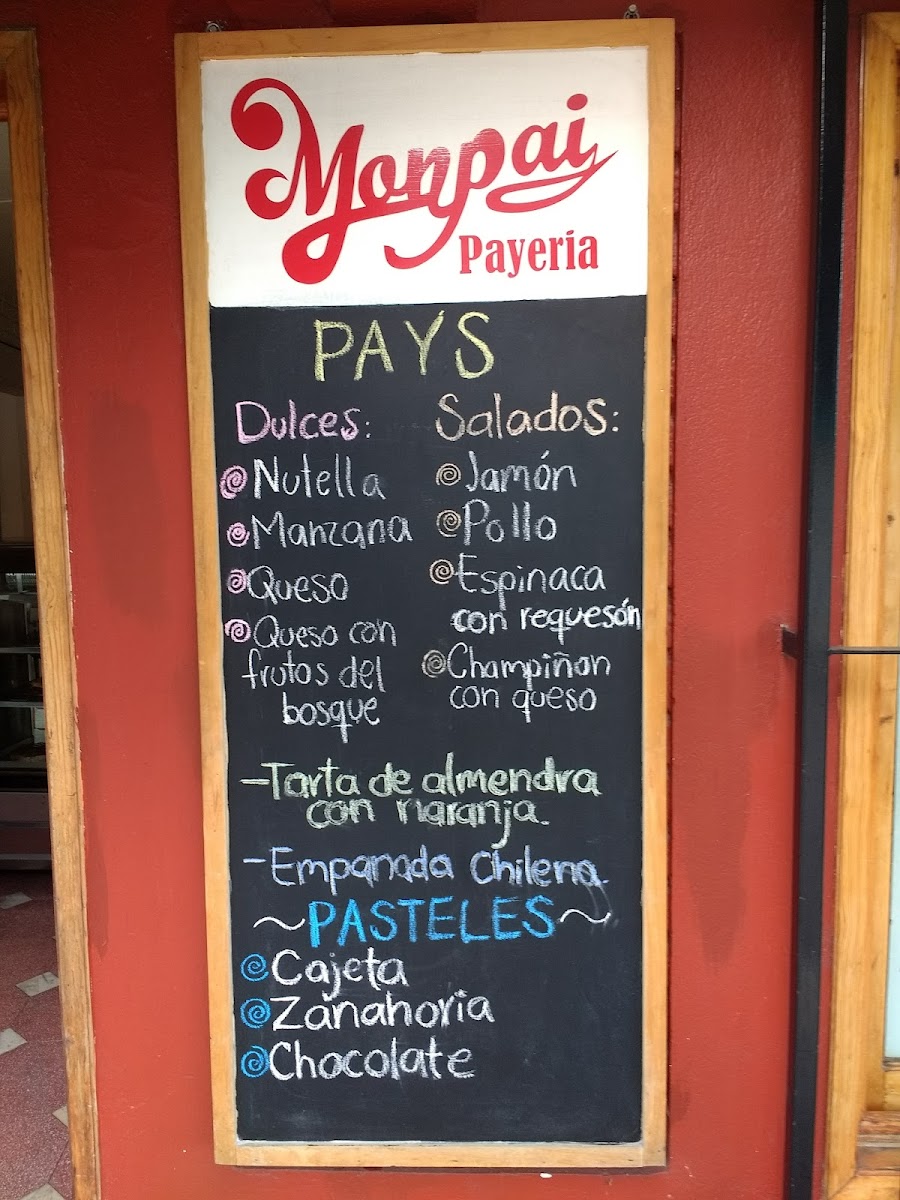 Monpai
Payeria
PAYS
Dulces:
Nutella
Manzana
Queso
Queso con
frutos del
bosque
Salados:
Jamón
Pollo
Espinaca
con requesón
Champiñon
con queso
-Tarta de almendra
con naranja.
-Empanada Chilena.
~PASTELES~
Cajeta
Zanahoria
Chocolate